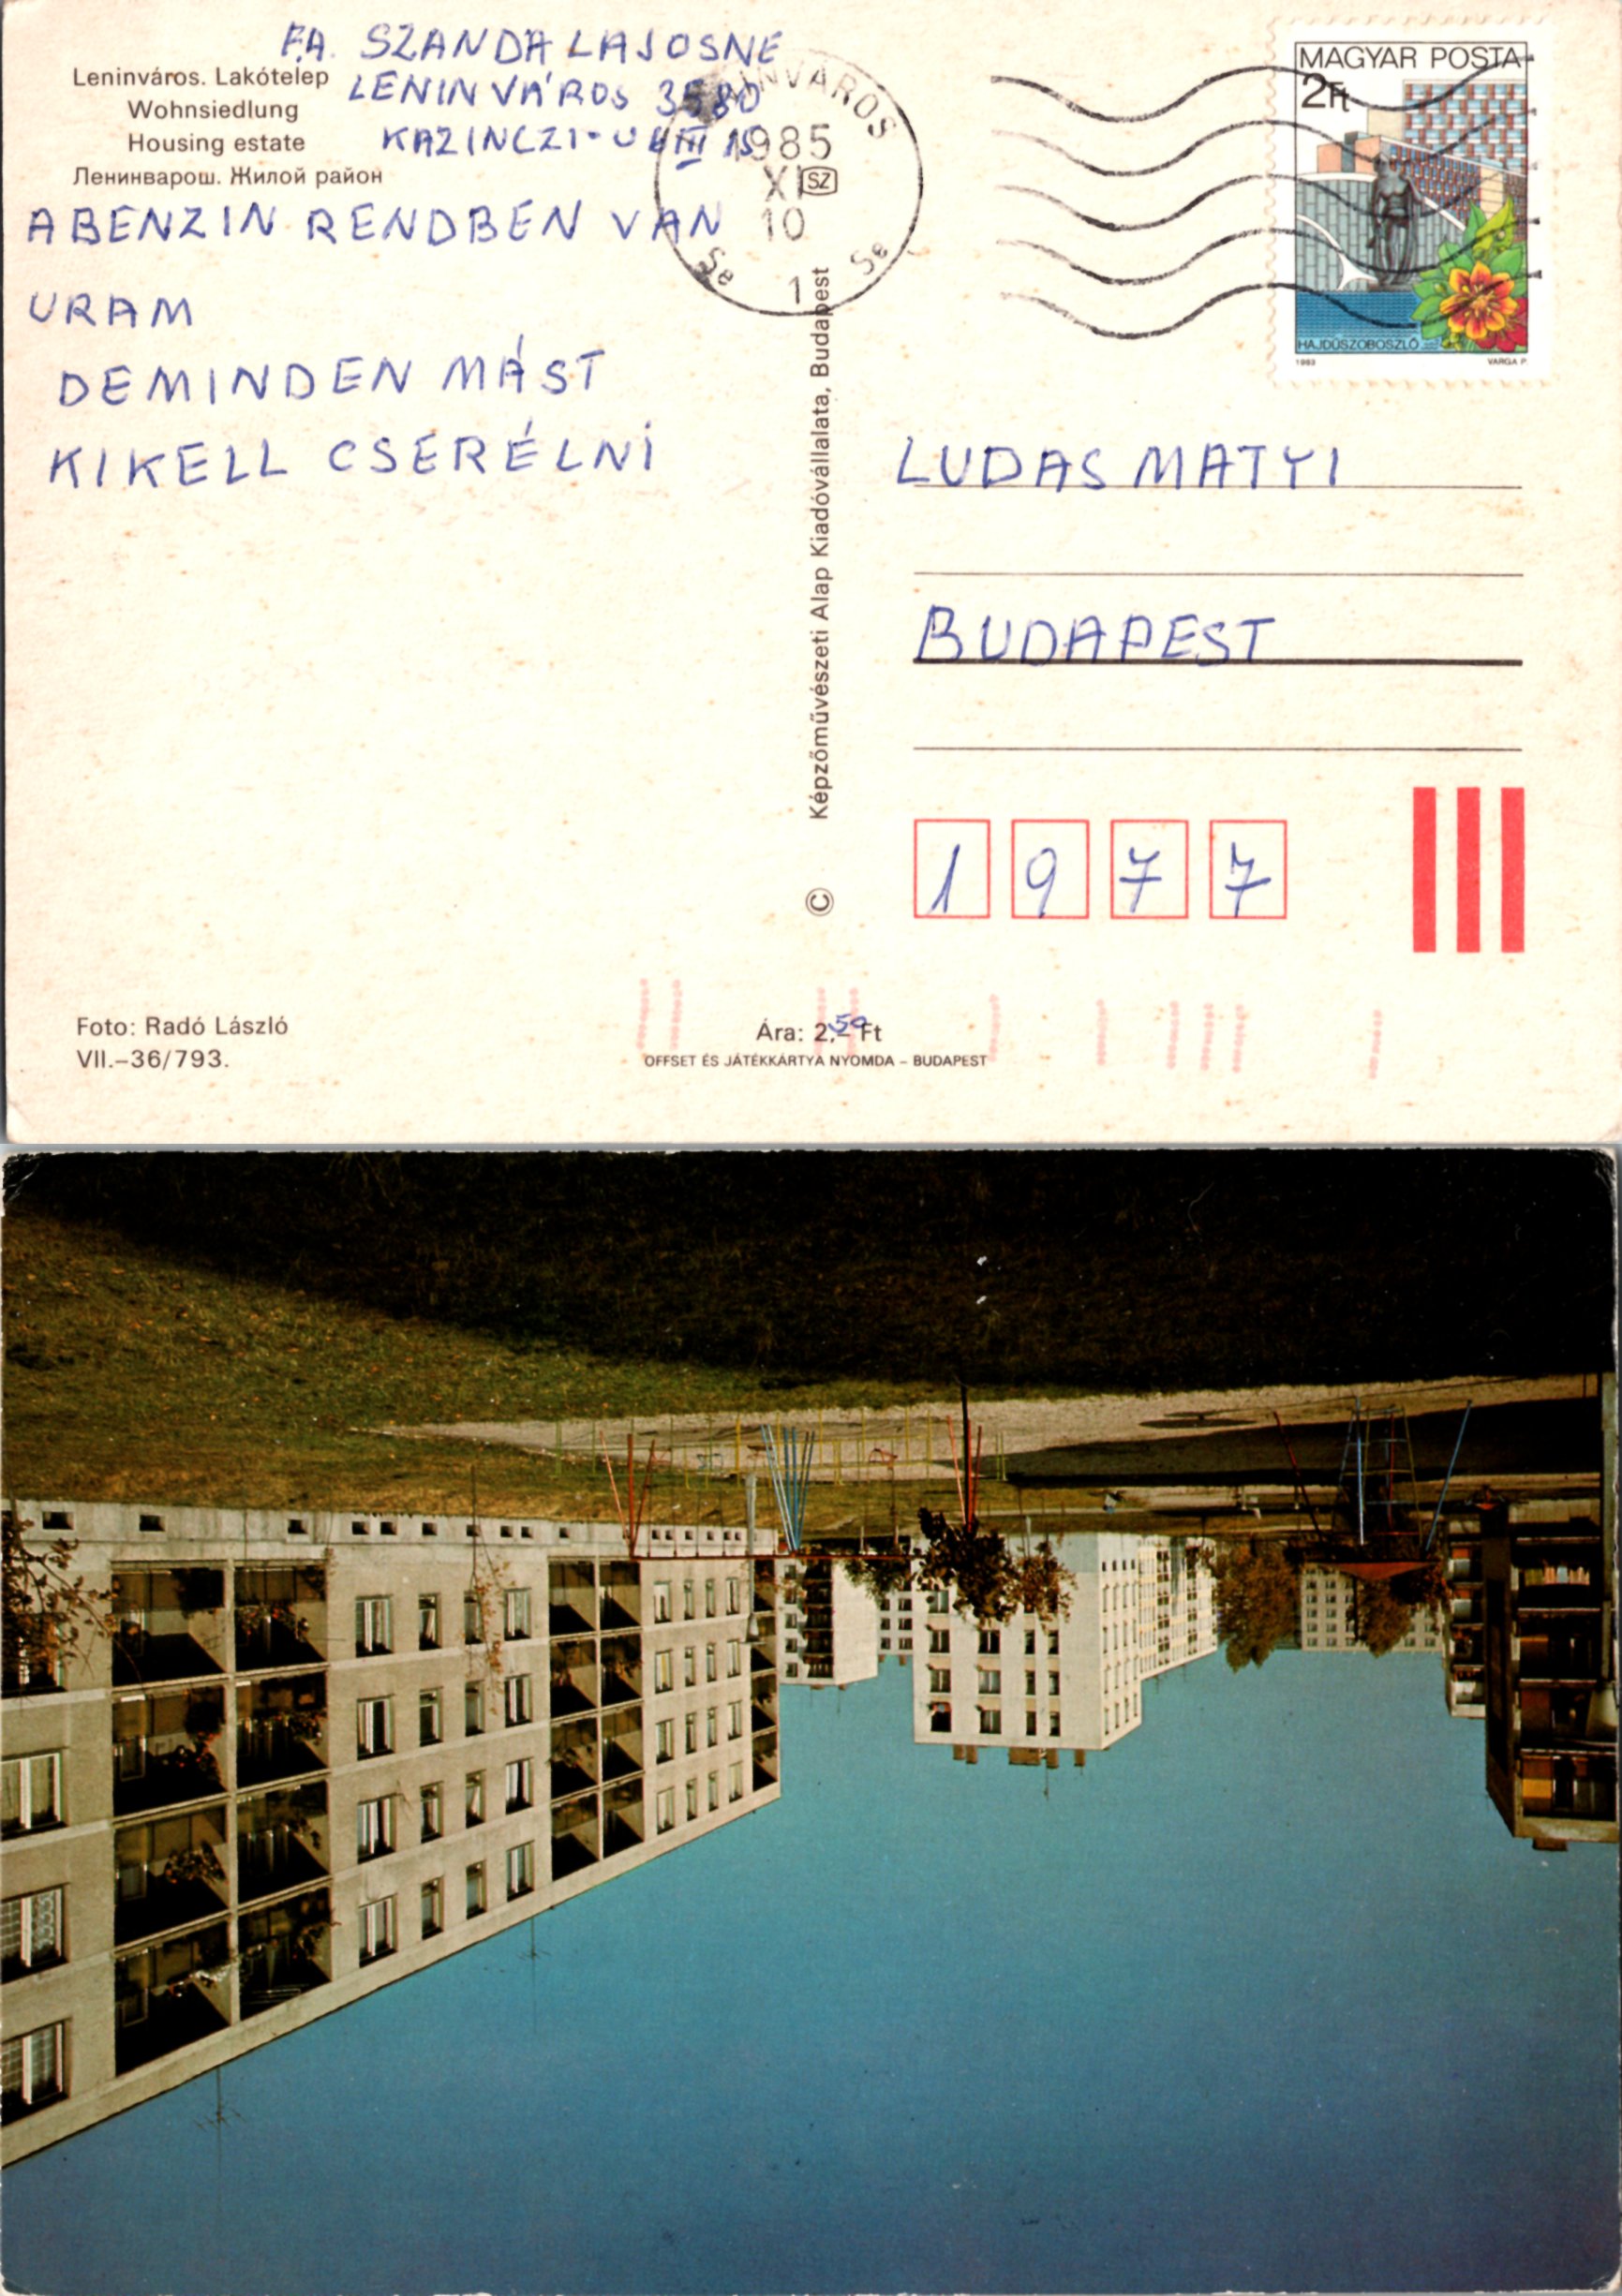 F.A. SZANDA LAJOSNE
LENINVÁROS 3580
KAZINCZI-U III 15
Leninváros. Lakótelep
Wohnsiedlung
Housing estate
Ленинварош. Жилой район
ABENZIN RENDBEN VAN
URAM
DEMINDEN MÁST
KIKELL CSERÉLNI
NINVÁROS
1985
XI SZ
10
Se 1 Se
MAGYAR POSTA
2Ft
HAJDÚSZOBOSZLÓ
1983 VARGA P.
LUDAS MATYI
BUDAPEST
1977
© Képzőművészeti Alap Kiadóvállalata, Budapest
Foto: Radó László
VII.–36/793.
Ára: 2,50 Ft
OFFSET ÉS JÁTÉKKÁRTYA NYOMDA – BUDAPEST